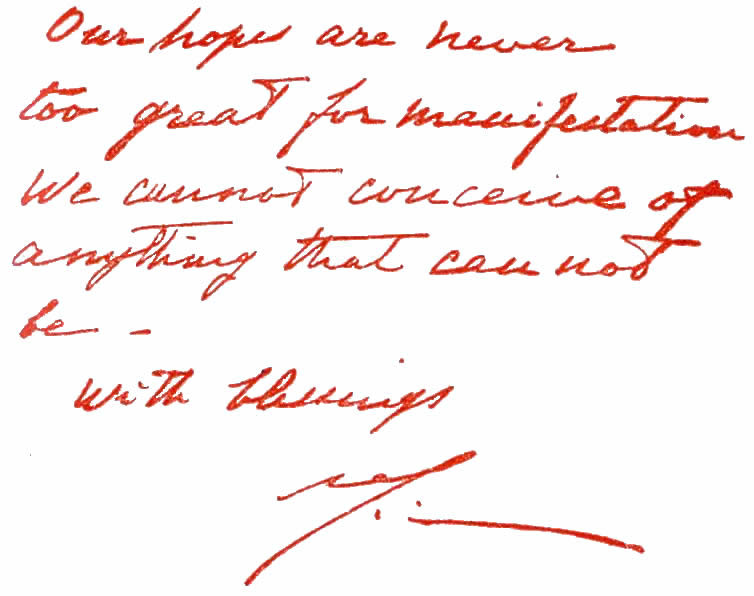 Our hopes are never
too great for manifestation
We cannot conceive of
anything that can not
be -
with blessings